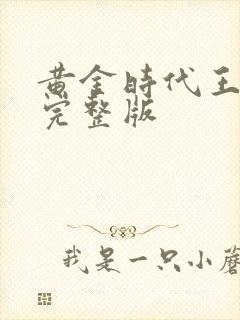 黄金時代王
完整版
我是一只小蘑